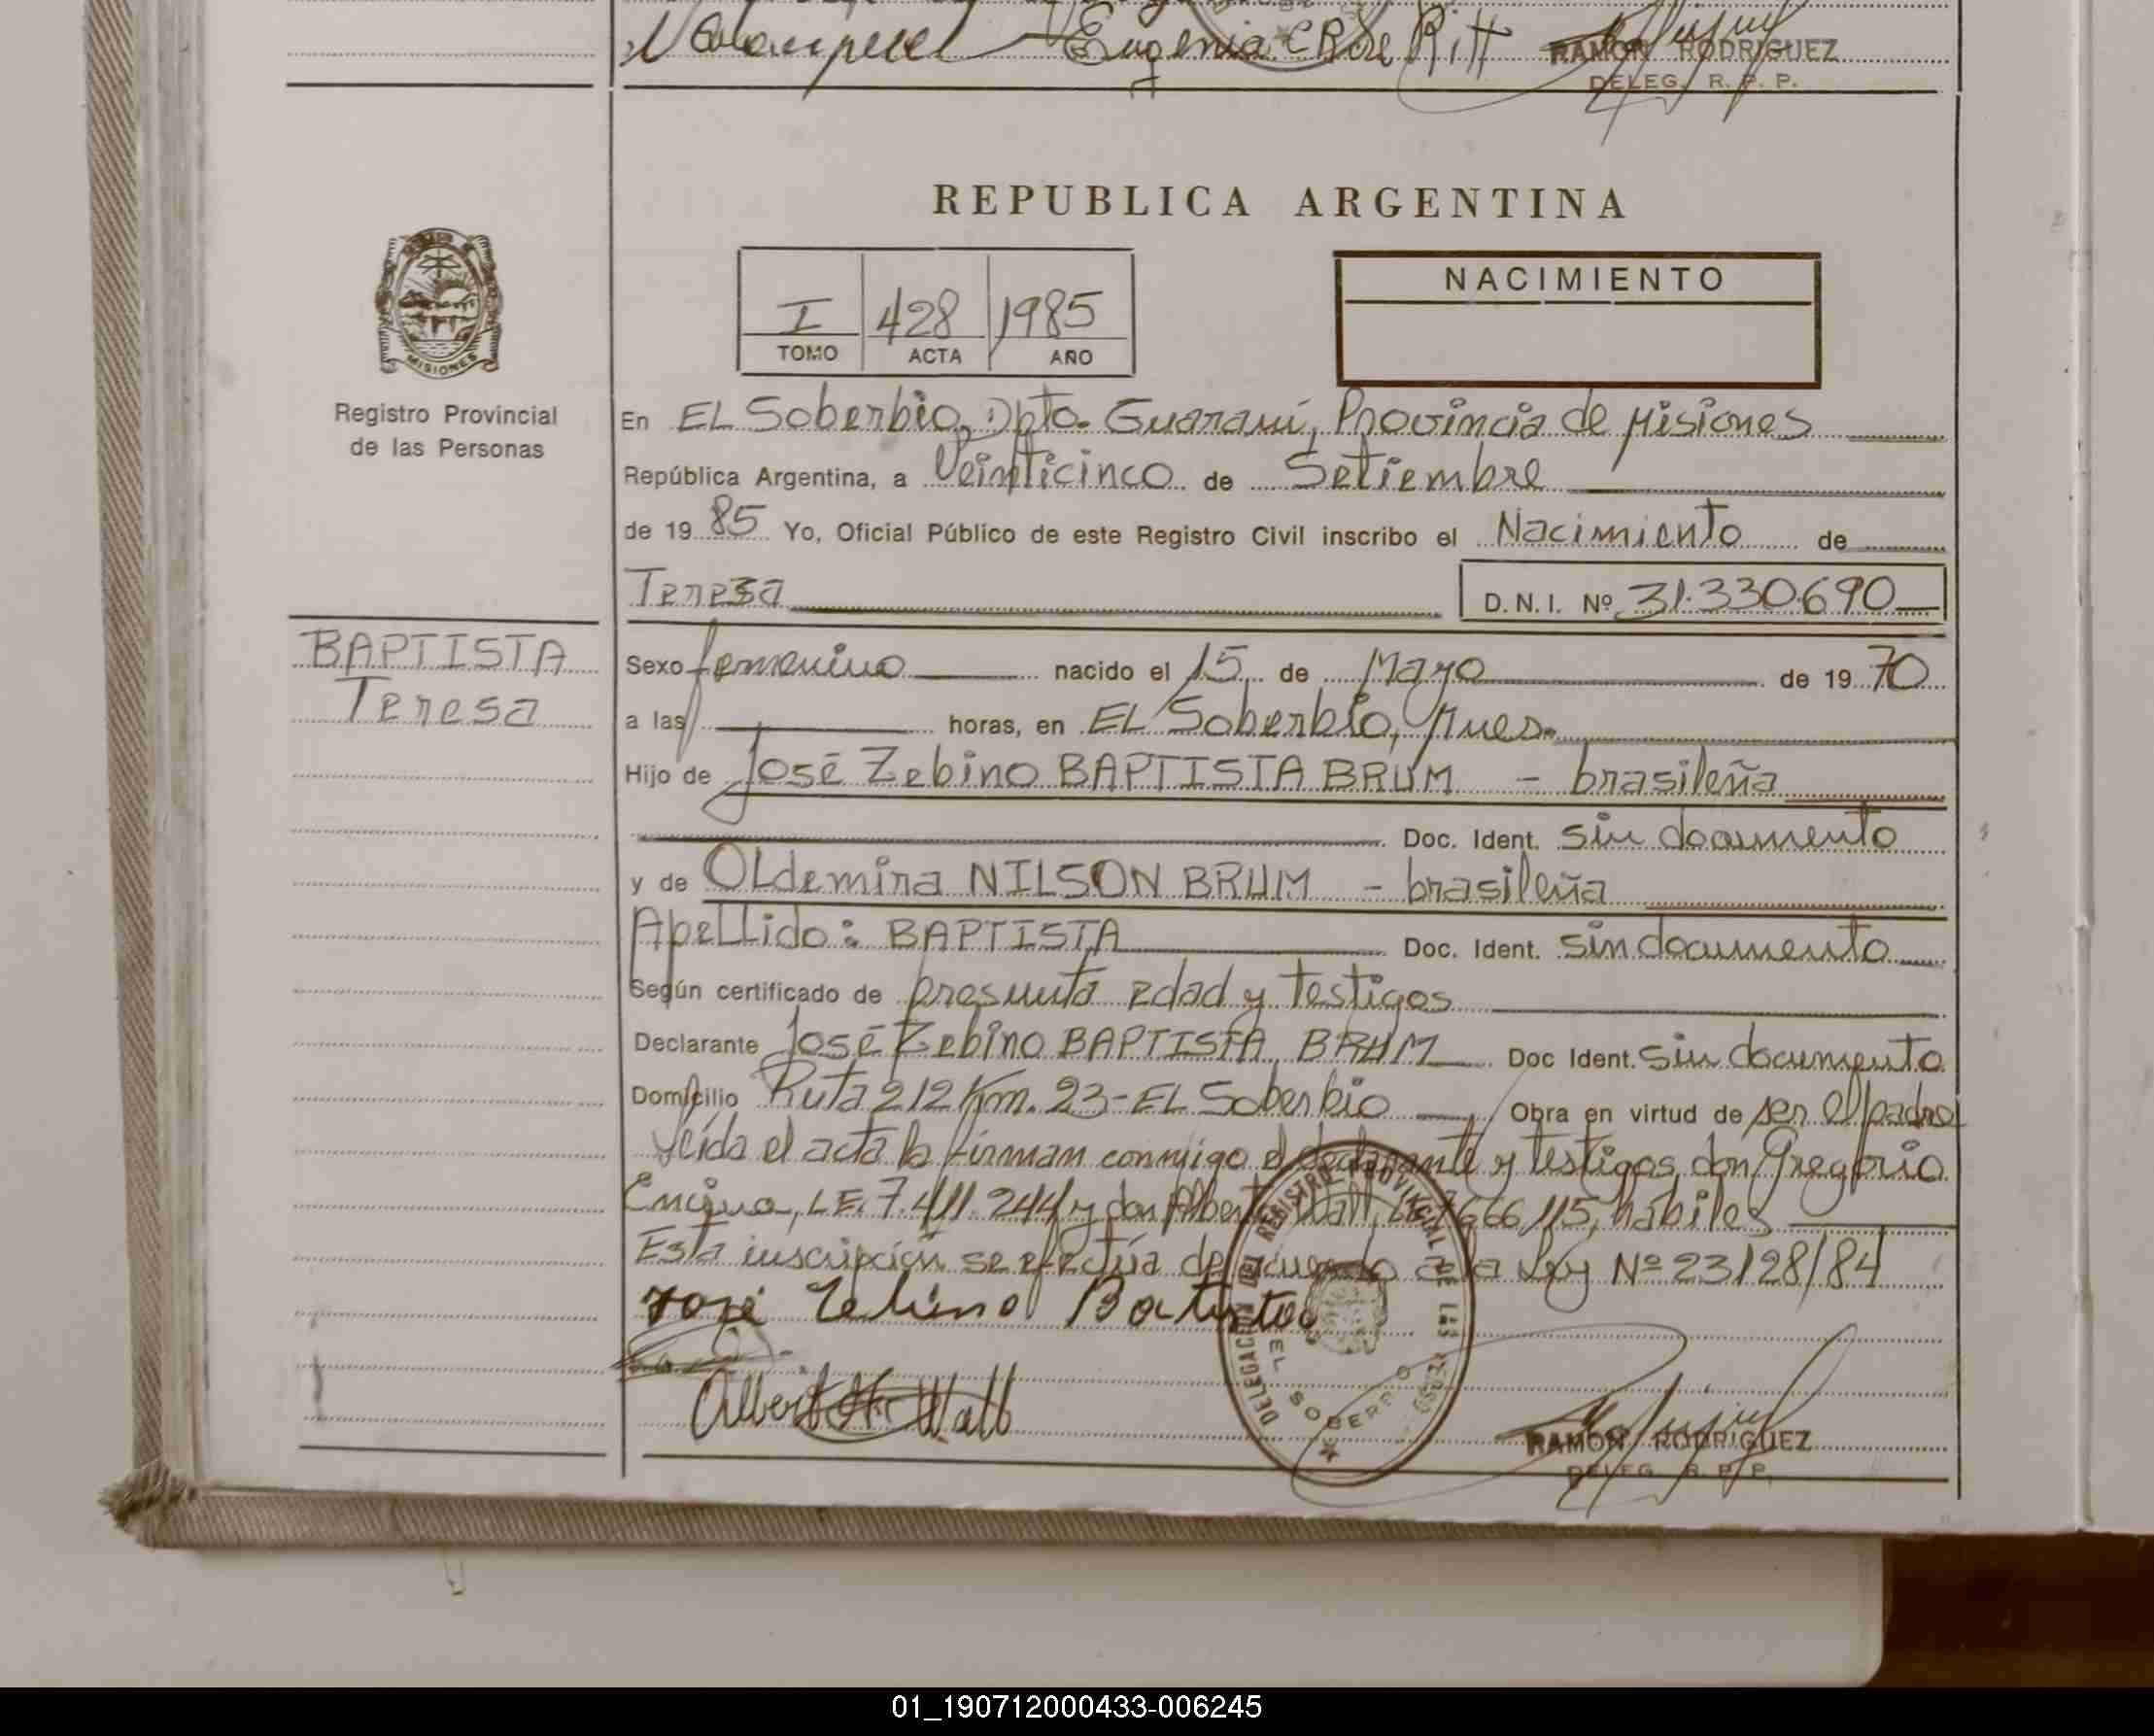 Eugenia C R de Ritt
RAMON RODRIGUEZ
DELEG. R. P. P.
REPUBLICA ARGENTINA
NACIMIENTO
I 428 1985
TOMO ACTA AÑO
MISIONES
Registro Provincial
de las Personas
En EL Soberbio, Dpto. Guaraní, Provincia de Misiones
República Argentina, a Veinticinco de Setiembre
de 1985 Yo, Oficial Público de este Registro Civil inscribo el Nacimiento de
Teresa D.N.I. Nº 31.330.690
BAPTISTA
Teresa
Sexo femenino nacido el 15 de Mayo de 1970
a las horas, en EL Soberbio, Mnes.
Hijo de José Zebino BAPTISTA BRUM - brasileña
Doc. Ident. sin documento
y de OLdemira NILSON BRUM - brasileña
Apellido: BAPTISTA Doc. Ident. sin documento
Según certificado de presunta edad y testigos
Declarante José Zebino BAPTISTA BRUM Doc Ident. sin documento
Domicilio Ruta 212 Km. 23 - EL Soberbio Obra en virtud de ser el padre
Leída el acta la firman conmigo el declarante y testigos don Gregorio
Encina, LE. 7.411.244 y don Alberto Wall, 7666115, hábiles
Esta inscripción se efectúa de acuerdo a la Ley Nº 23128/84
José Zebino Batista
Wall
DELEGACION DEL REGISTRO PROVINCIAL DE LAS PERSO
EL SOBERBIO
RAMON RODRIGUEZ
DELEG. R. P. P.
01_190712000433-006245